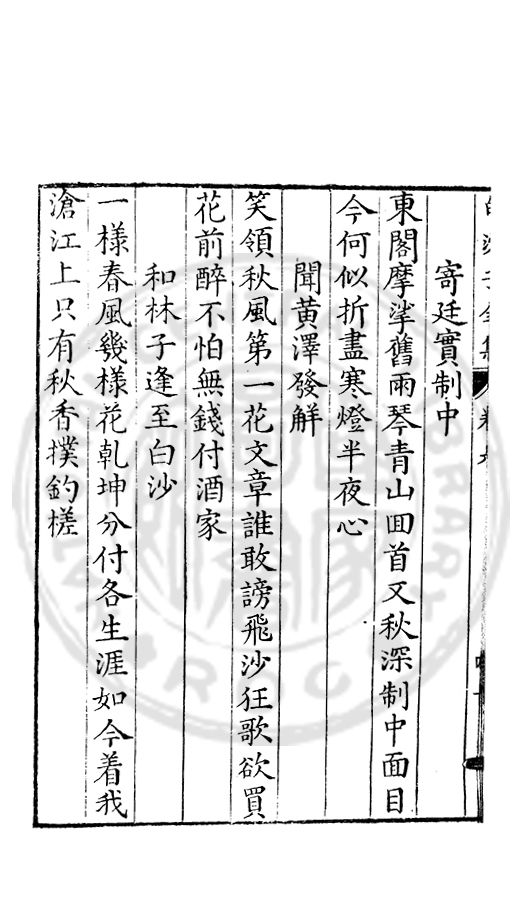 寄廷實制中
東閣摩挲舊雨琴青山回首又秋深制中面目
今何似折盡寒燈半夜心
聞黃澤發解
笑領秋風第一花文章誰敢謗飛沙狂歌欲買
花前醉不怕無錢付酒家
和林子逢至白沙
一樣春風幾樣花乾坤分付各生涯如今着我
滄江上只有秋香撲釣槎